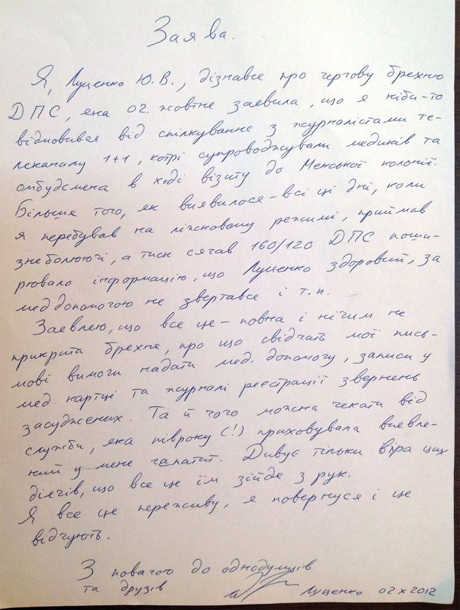 Заява.
Я, Луценко Ю.В., дізнався про чергову брехню
ДПС, яка 02. жовтня заявила, що я ніби-то
відмовився від спілкування з журналістами те-
леканалу 1+1, котрі супроводжували медиків та
омбудсмена в ході візиту до Менської колонії.
Більше того, як виявилося - всі ці дні, коли
я перебував на ліжковому режимі, приймав
знеболюючі, а тиск сягав 160/120 ДПС поши-
рювало інформацію, що Луценко здоровий, за
меддопомогою не звертався і т.п.
Заявляю, що все це - повна і нічим не
прикрита брехня, про що свідчать мої пись-
мові вимоги надати мед. допомогу, записи у
мед. картці та журналі реєстрації звернень
засуджених. Та й чого можна чекати від
служби, яка півроку (!) приховувала виявле-
ний у мене гепатит. Дивує тільки віра цих
діячів, що все це їм зійде з рук.
Я все це переживу, я повернуся і це
відчують.
З повагою до однодумців
та друзів
Луценко 02 X 2012